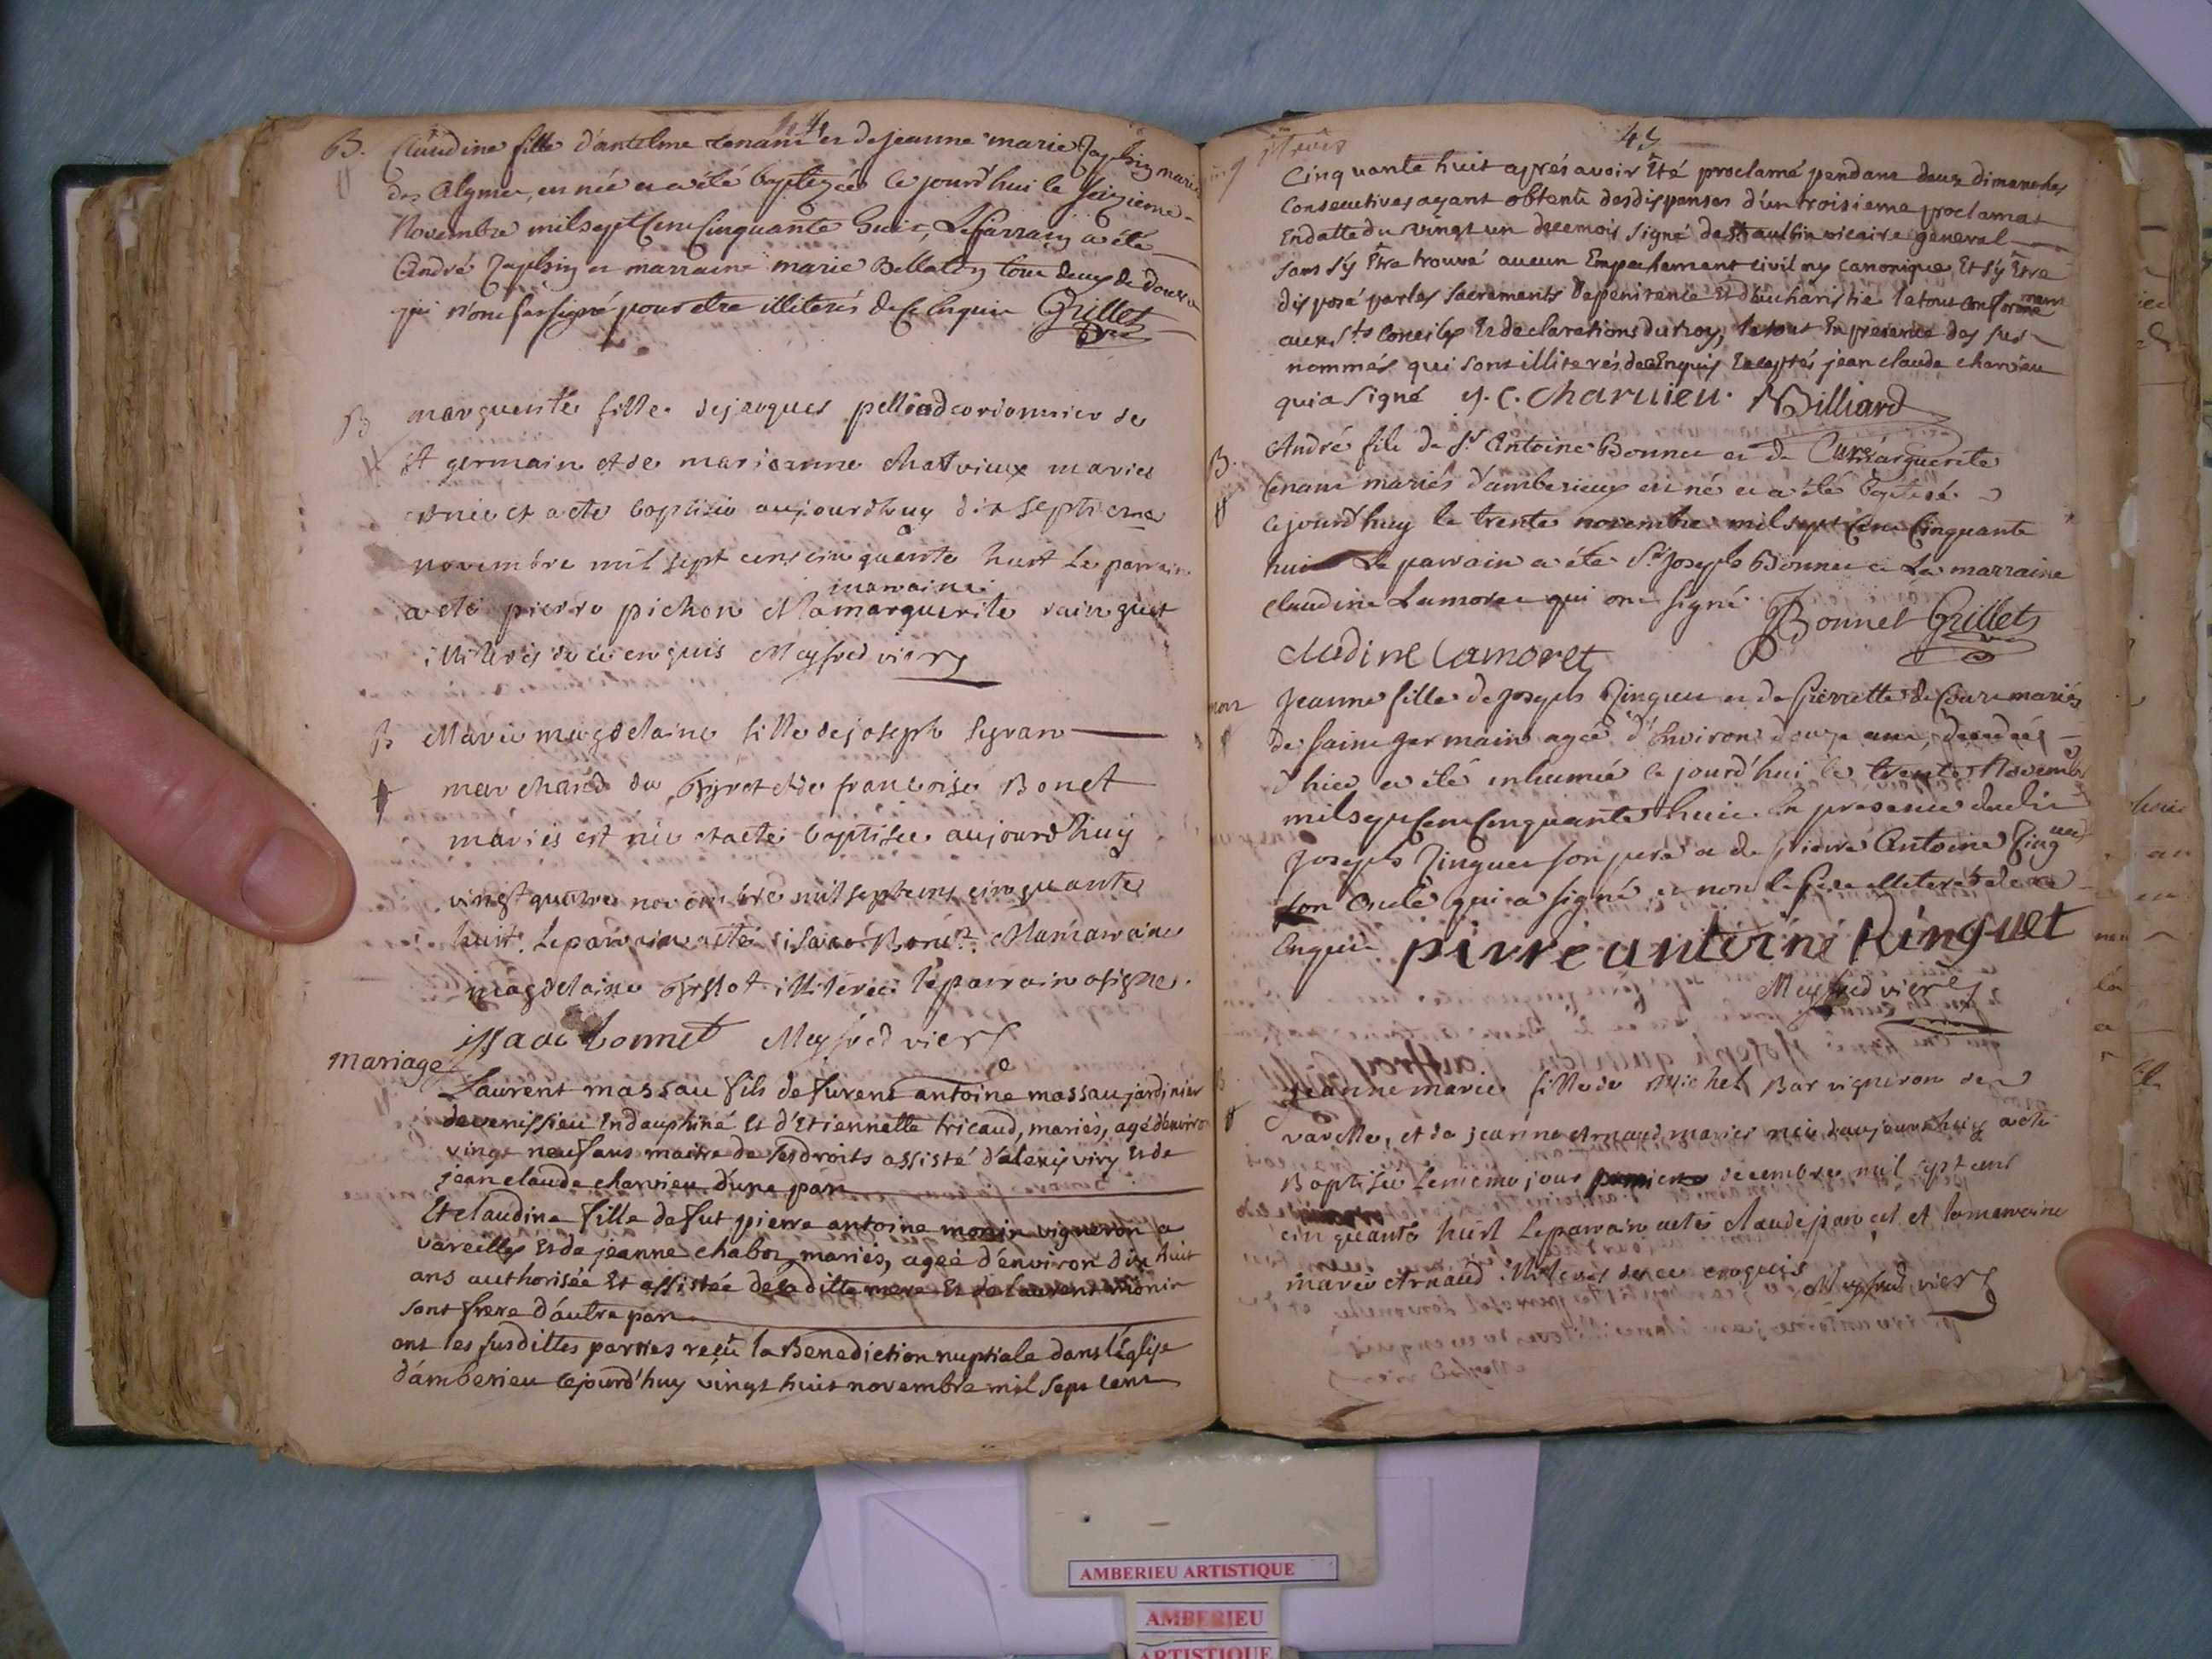 44
B. Claudine fille d'antelme tenant et de jeanne marie mariés
des alymes, est née et a été baptizée ce jourd'hui le seizieme
Novembre mil sept Cent Cinquante huit, Le Parrain a été
André et marraine marie Bellaton tous deux de
qui n'ont sas signé pour etre illiterés de ce Enquis Grillet
B marguerite fille de jaques pelliod cordonnier de
st germain et de marieanne chatvieux mariés
est nee et a ete baptisée aujourdhuy dix septieme
novembre mil sept cens cinquante huit Le parrain
marraine
a eté pierre pichon et la marguerite rainguet
illiterés de ce enquis Meyfred vier
B Marie magdelaine fille de joseph legran
marchand du tiret et de francoise Bonet
mariés est née et a eté baptisée aujourdhuy
vingt quatre novembre mil sept cens cinquante
huit. Le parrain a eté isaac Bonet. et la marraine
magdelaine illiterée le parrain a signé.
issaac bonnet Meyfred vier
mariage
Laurent massau fils de furent antoine massau jardinier
de venissieu En dauphiné Et d'Etiennette tricaud, mariés, agé d'environ
vingt neuf ans maitre de ses droits assisté d'alexis viry Et de
jean claude charvieu d'une part
Et claudine fille de fut pierre antoine monin vigneron a
vareilles Et de jeanne chabot mariés, ageé d'environ dix huit
ans authorisée Et assistée de sa ditte mere Et de laurent monin
sont frere d'autre part
ont les susdittes parties reçu la Benediction nuptiale dans l'église
d'amberieu cejourd'huy vingt huit novembre mil sept cent
45
Cinquante huit après avoir Eté proclamé pendant deux dimanches
Consecutives ayant obtenu des dispenses d'un troisieme proclamat
En datte du vingt un de ce mois signé de St aulbin vicaire general
sans s'y Etre trouvé aucun Empechement civil ny canonique Et s'y Etre
disposé par les sacrements de penitence Et d'eucharistie le tout conformement
aux Sts Conciles Et declarations du roy, le tout En presence des sus
nommés qui sont illiterés de ce Enquis Exceptés jean claude charvieu
qui a signé J. C. Charuieu. Billiard
Curé
B. André fils de Sr Antoine Bonnet et de marguerite
tenant mariés d'amberieux est né et a été baptisé
ce jourd'huy le trente novembre mil sept Cent Cinquante
huit Le parrain a été Sr Joseph Bonnet et La marraine
Claudine Lamoret qui ont signé. Bonnet Grillet
Cladine Lamoret
mort Jeanne fille de Joseph Ringuet et de Pierrette de Cour mariés
de saint germain agée d'Environ douze ans, decedée
d'hier a été inhumée ce jourd'hui le trente Novembre
mil sept Cent Cinquante huit. En presence dudit
Joseph Ringuet son pere et de pierre Antoine Ringuet
son oncle qui a signé et non le Pere illiteré de ce
Enquis pierre antoine Ringuet
Meyfred vier
B Jeanne marie fille de Michel Bar vigneron de
vareille, et de jeanne Arnaud mariés née d'aujourdhuy a eté
Baptisée le meme jour premier decembre mil sept cent
cinquante huit Le parrain a eté claude et la marraine
marie Arnaud illiterés de ce enquis Meyfred vier
AMBERIEU ARTISTIQUE
AMBERIEU
ARTISTIQUE